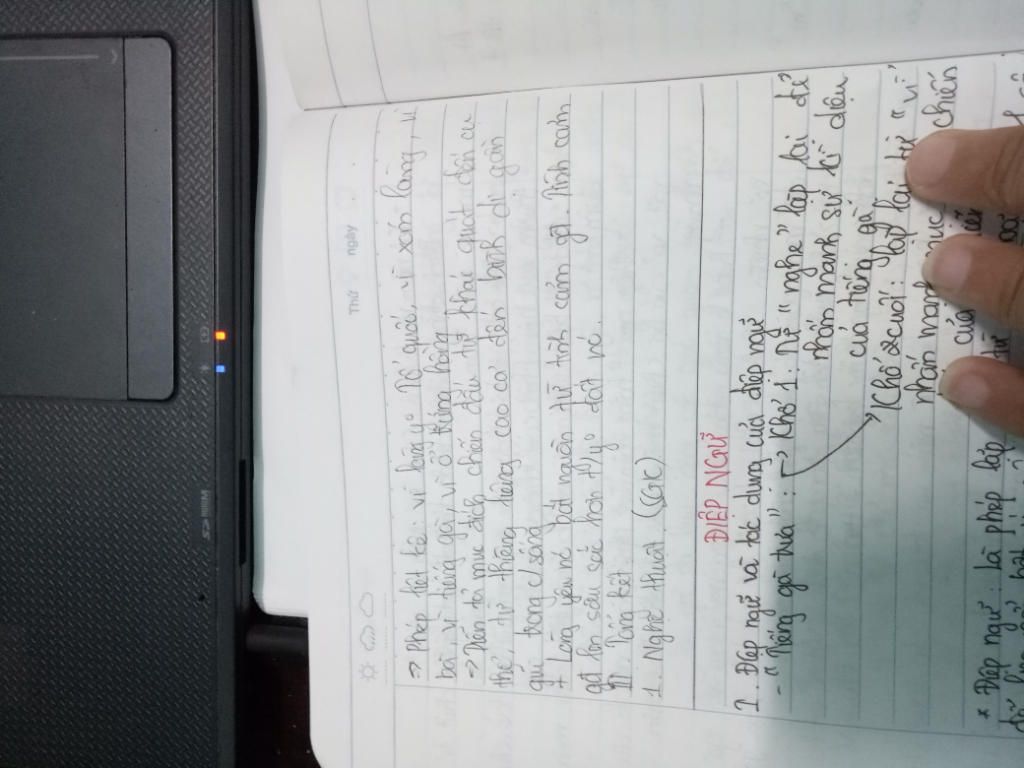 Thứ ngày
=> Phép liệt kê: vì lòng yo Tổ quốc, vì xóm làng, vì
bà, vì tiếng gà, vì ổ trứng hồng
=> Diễn tả mục đích chiến đấu từ khái quát đến cụ
thể, từ thiêng liêng cao cả đến bình dị gần
gũi trong c/sống
+ Lòng yêu nc bắt nguồn từ tình cảm gđ. Tình cảm
gđ làm sâu sắc hơn t/yo đất nc.
III. Tổng kết
1. Nghệ thuật (SGK)
ĐIỆP NGỮ
I. Điệp ngữ và tác dụng của điệp ngữ
- "Tiếng gà trưa": -> Khổ 1: Từ "nghe" lặp lại để
nhấn mạnh sự kì diệu
của tiếng gà
Khổ cuối: lặp lại từ "vì"
nhấn mạnh mục chiến
của
* Điệp ngữ: là phép lặp
SD/MMC